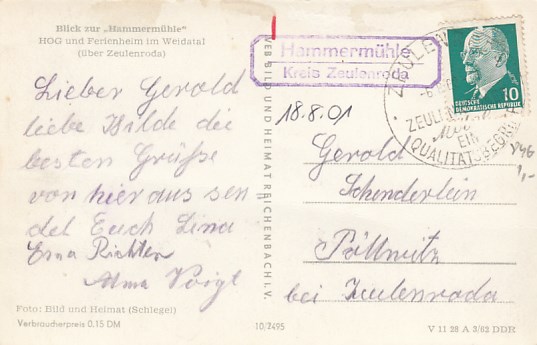 Blick zur „Hammermühle"
HOG und Ferienheim im Weidatal
(über Zeulenroda)
Lieber Gerold
liebe Hilde die
besten Grüße
von hier aus sen
det Euch Lina
Erna Richter
Alma Voigt
Foto: Bild und Heimat (Schlegel)
Verbraucherpreis 0.15 DM
VEB BILD UND HEIMAT REICHENBACH I. V.
10/2495
Hammermühle
Kreis Zeulenroda
18.8.01
ZEULEN
ZEULEN
EIN
QUALITÄTSBEGRIFF
10
DEUTSCHE
DEMOKRATISCHE REPUBLIK
1,-
Gerold
Schenderlein
Pöllwitz
bei Zeulenroda
V 11 28 A 3/62 DDR